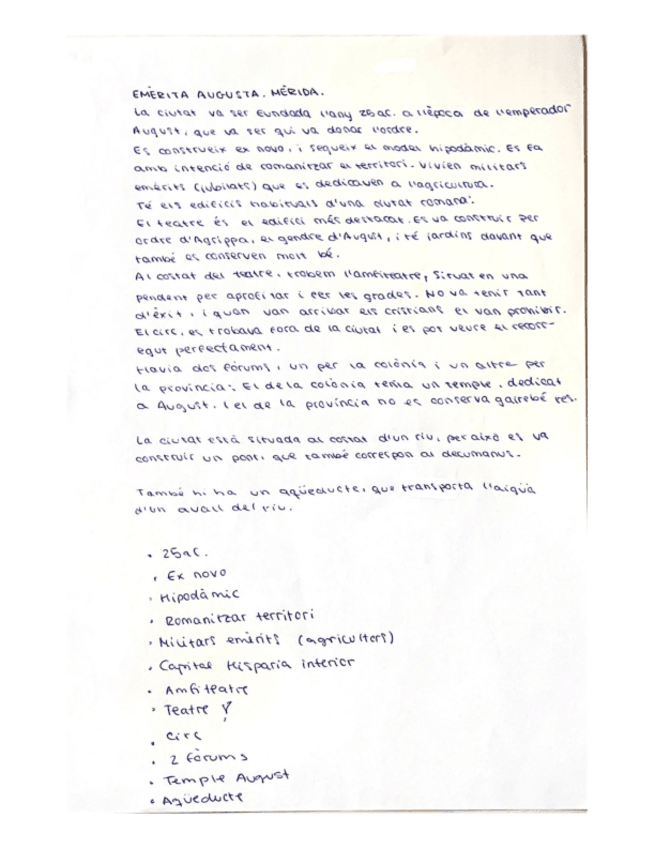 EMÈRITA AUGUSTA. MÉRIDA.
La ciutat va ser fundada l'any 25aC. a l'època de l'emperador
August, que va ser qui va donar l'ordre.
Es construeix ex novo, i segueix el model hipodàmic. Es fa
amb intenció de romanitzar el territori. Vivien militars
emèrits (jubilats) que es dedicaven a l'agricultura.
Té els edificis habituals d'una ciutat romana:
El teatre és el edifici més destacat. Es va construir per
ordre d'Agrippa, el gendre d'August, i té jardins davant que
també es conserven molt bé.
Al costat del teatre, trobem l'amfiteatre, situat en una
pendent per aprofitar i fer les grades. No va tenir tant
d'èxit, i quan van arribar els cristians el van prohibir.
El circ, es trobava fora de la ciutat i es pot veure el recorr-
egut perfectament.
Havia dos fòrums, un per la colònia i un altre per
la província: El de la colònia tenia un temple, dedicat
a August. I el de la província no es conserva gairebé res.
La ciutat està situada al costat d'un riu, per això es va
construir un pont, que també correspon al decumanus.
També hi ha un aqüeducte, que transporta l'aigüa
d'un avall del riu.
• 25aC.
• Ex novo
• Hipodàmic
• Romanitzar territori
• Militars emèrits (agricultors)
• Capital Hispania inferior
• Amfiteatre
• Teatre
• Circ
• 2 fòrums
• Temple August
• Aqüeducte